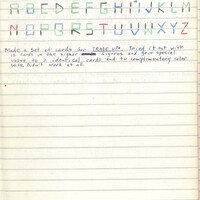 A B C D E F G H I J K L M
N O P Q R S T U V W X Y Z
Made a set of cards for TRADE-UPS. Tried it out with
12 cards in the higher figures and gave special
value to 2 identical cards and to complimentary color
sets. Didn't work at all.